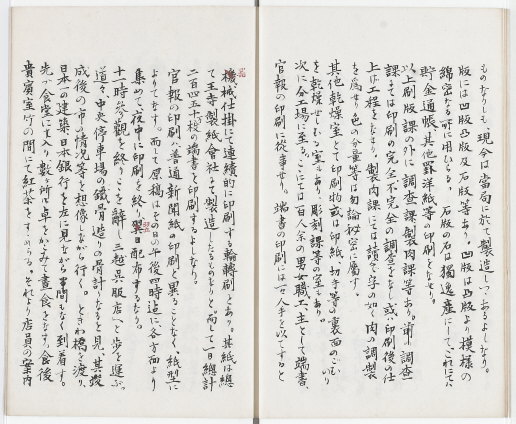 ものなりしも現今は当局に於て製造しつゝあるよしなり。
版には凹版凸版及石版等あり。凹版は凸版より模様の
綿密なる所に用ひらる。石版の石は独逸産にして、これにては
貯金通帳其他罫洋紙等の印刷をなせり。
以上刷版課の外に調査課製肉課等あり。調査
課にては印刷の完全不完全の調査をなし或は印刷後の仕
上げ工程をなせり。製肉課にては読で字の如く肉の調製
を為せり色の分量等は勿論秘密に属す。
其他乾燥室とて印刷物或は印紙、切手等の裏面のごむのり
を乾燥せしむる室もあり。彫刻課等の室もあり。
次に分工場に至る。こゝには百人余の男女職工、主として端書、
官報の印刷に従事せり。端書の印刷には一日人手を以てすると
機械仕掛にて連続的に印刷する輪転刷とあり。其紙は総
て王子製紙会社にて製造したるものなりと。而して一日総計
二百四五十万枚の端書を印刷するよしなり。
官報の印刷は普通新聞紙の印刷と異ることなく、紙型に
よりてなす。而して原稿はその日の午後四時迄に各方面より
集めて、夜中に印刷を終り翌日配布するなり。
十一時参観を終りこゝを辞し三越呉服店へと歩を運ぶ。
道々、中央停車場の鉄骨造りの骨計りなるを見、其竣
成後の市の情況等を想像しながら行く。ときわ橋を渡り、
日本一の建築日本銀行を左に見ながら間もなく到着す。
先づ食堂に入り数ヶ所に卓をかこみて昼食をなす。食後
貴賓室竹の間にて紅茶をすゝめらる。それより店員の案内